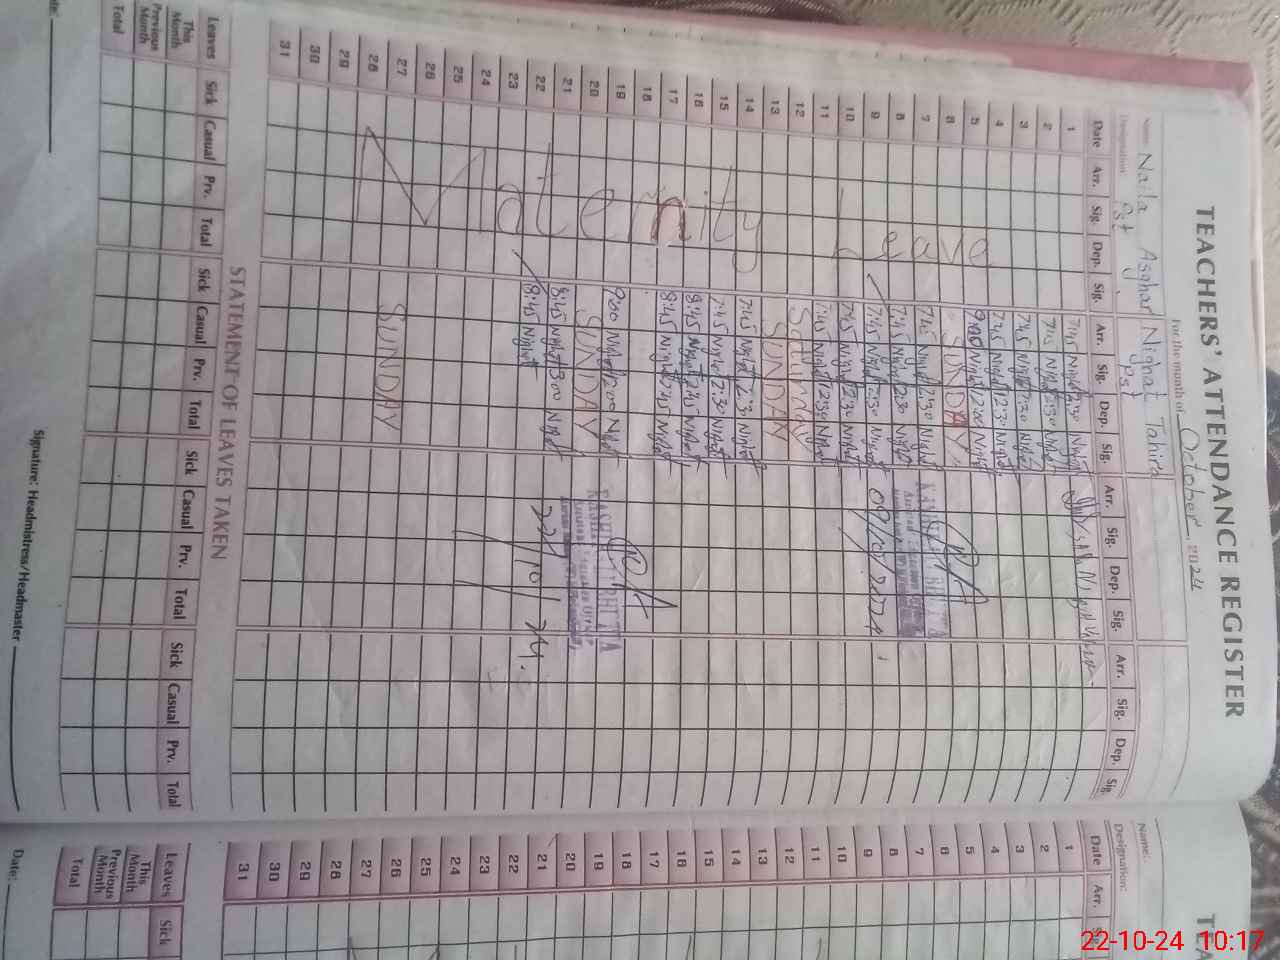 TEACHERS' ATTENDANCE REGISTER
For the month of October, 2024
Name: Naila Asghar Nighat Tahira
Designation: Pst Pst
Date Arr. Sig. Dep. Sig. Arr. Sig. Dep. Sig. Arr. Sig. Dep. Sig. Arr. Sig. Dep. Sig.
1 7:45
2
3 7:45 Nighat 12:30 Nighat
4 7:45 Nighat 12:30 Nighat
5 9:00 Nighat 12:00 Nighat
6 SUNDAY
7 7:45 Nighat 12:30 Nighat
8 7:45 Nighat 12:30 Nighat
9 7:45 Nighat 12:30 Nighat 09/10/2024
10 7:45 Nighat 12:30 Nighat
11 7:45 Nighat 12:30 Nighat
12 Saturday
13 SUNDAY
14 7:45 Nighat 12:30 Nighat
15 7:45 Nighat 12:30 Nighat
16 8:45 Nighat 2:45 Nighat
17 8:45 Nighat 2:45 Nighat
18
19 9:00 Nighat 12:00 Nighat
20 SUNDAY
21 8:45 Nighat 1:00 Nighat
22 8:45 Nighat 22/10/24
23
24
25
26
27 SUNDAY
28
29
30
31
Maternity Leave
STATEMENT OF LEAVES TAKEN
Leaves Sick Casual Prv. Total Sick Casual Prv. Total Sick Casual Prv. Total Sick Casual Prv. Total
This Month
Previous Month
Total
Signature: Headmistress/Headmaster
TEA
Name:
Designation:
Date Arr.
1
2
3
4
5
6
7
8
9
10
11
12
13
14
15
16
17
18
19
20
21
22
23
24
25
26
27
28
29
30
31
Leaves Sick
This Month
Previous Month
Total
Date:
22-10-24 10:17